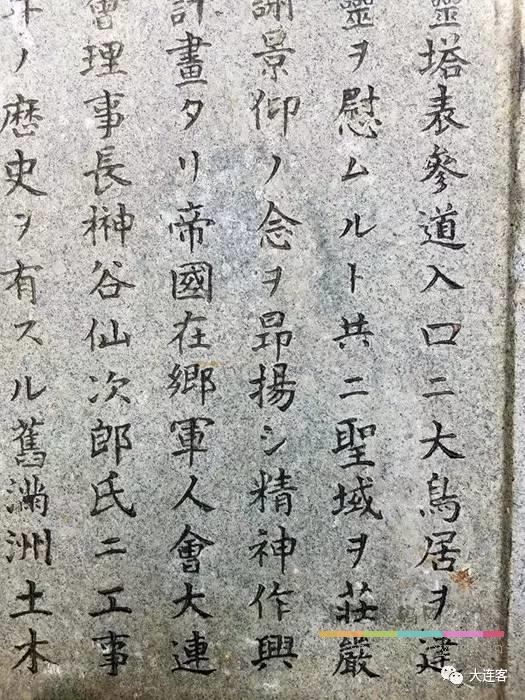 靈塔表參道入口ニ大鳥居ヲ建
靈ヲ慰ムルト共ニ聖域ヲ莊嚴
謝景仰ノ念ヲ昂揚シ精神作興
計畫タリ帝國在鄉軍人會大連
會理事長榊谷仙次郎氏ニ工事
年ノ歴史ヲ有スル舊満洲土木
大连客